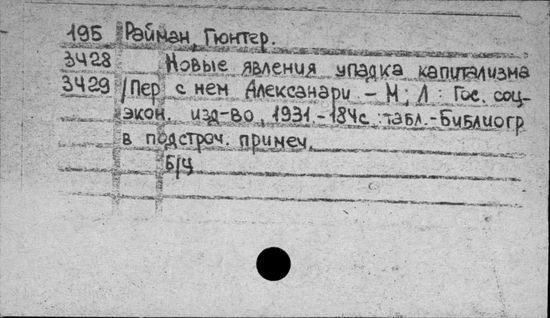 195 Райман, Гюнтер.
3428 Новые явления упадка капитализма
3429 /Пер с нем Александри – М; Л: Гос. соц-
экон. изд-во, 1931.-184с.:табл.-Библиогр
в подстроч. примеч.
б/ц